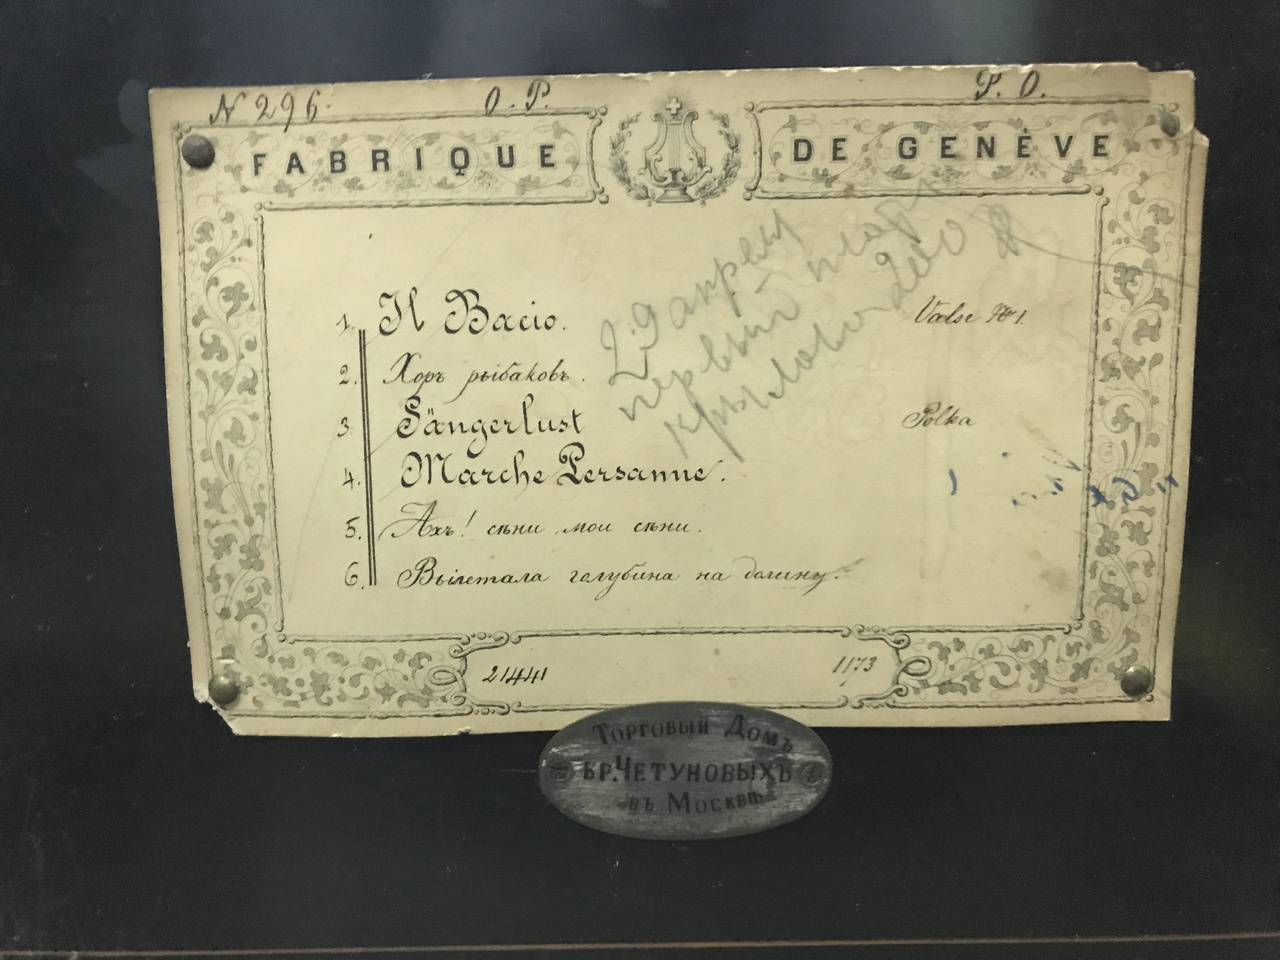 N 296. O. P. P. O.
FABRIQUE DE GENÈVE
1. Il Bacio. Valse
2. Хоръ рыбаковъ.
3. Sängerlust Polka
4. Marche Persanne.
5. Ахъ! сѣни мои сѣни.
6. Вылетала голубина на долину.
29 апрели
первый
21441 1173
Торговый Домъ
Бр. Четуновыхъ
въ Москвѣ